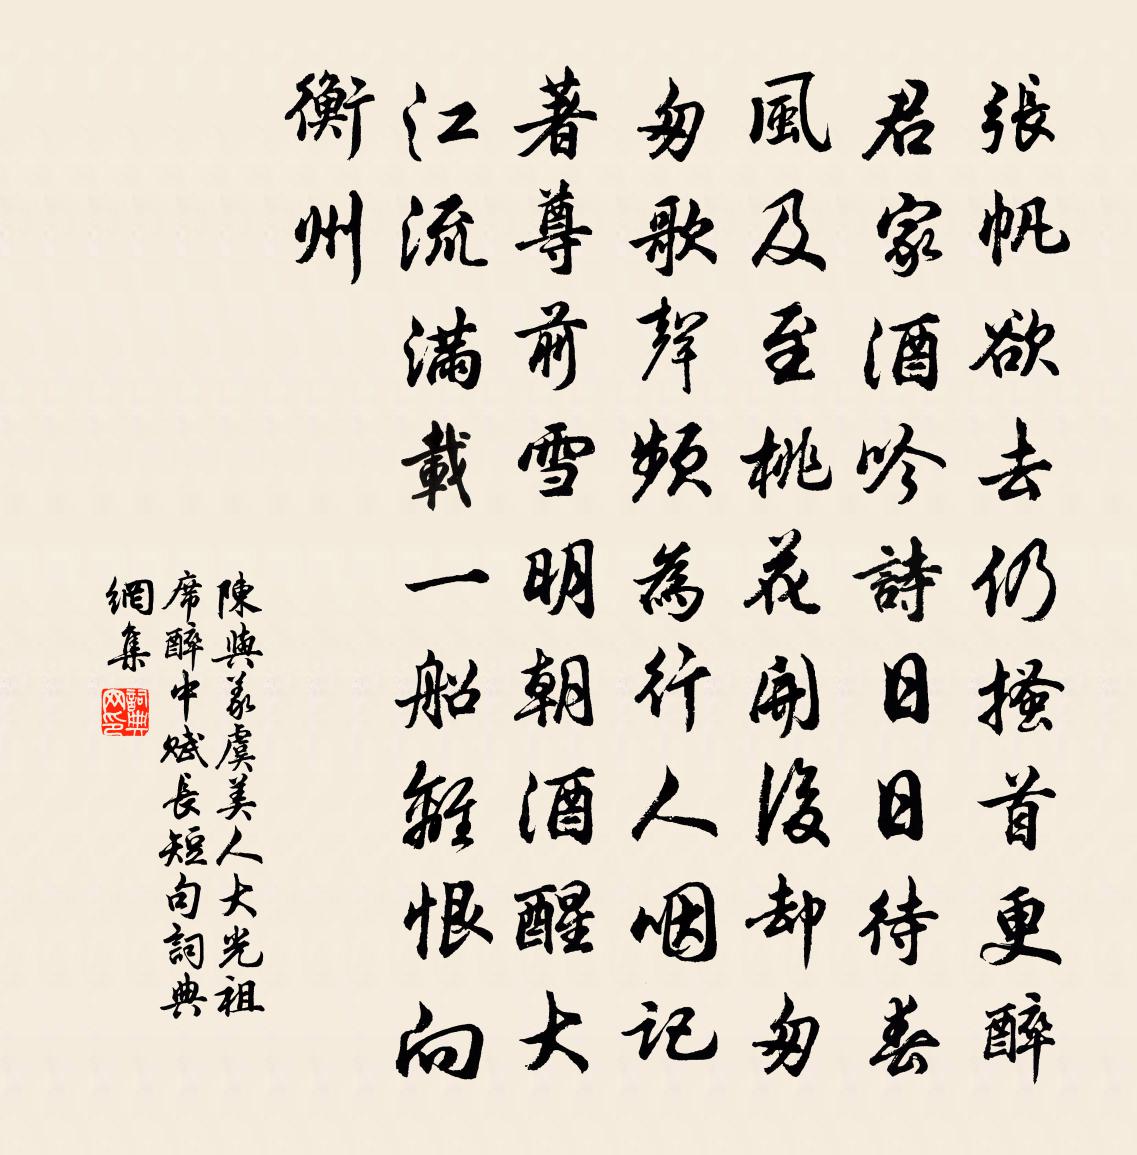 張帆欲去仍搔首更醉
君家酒吟詩日日待春
風及至桃花開後却匆
匆歌聲頻為行人咽記
著尊前雪明朝酒醒大
江流滿載一船離恨向
衡州
陳與義虞美人大光祖
席醉中賦長短句詞典
網集
詞典網印